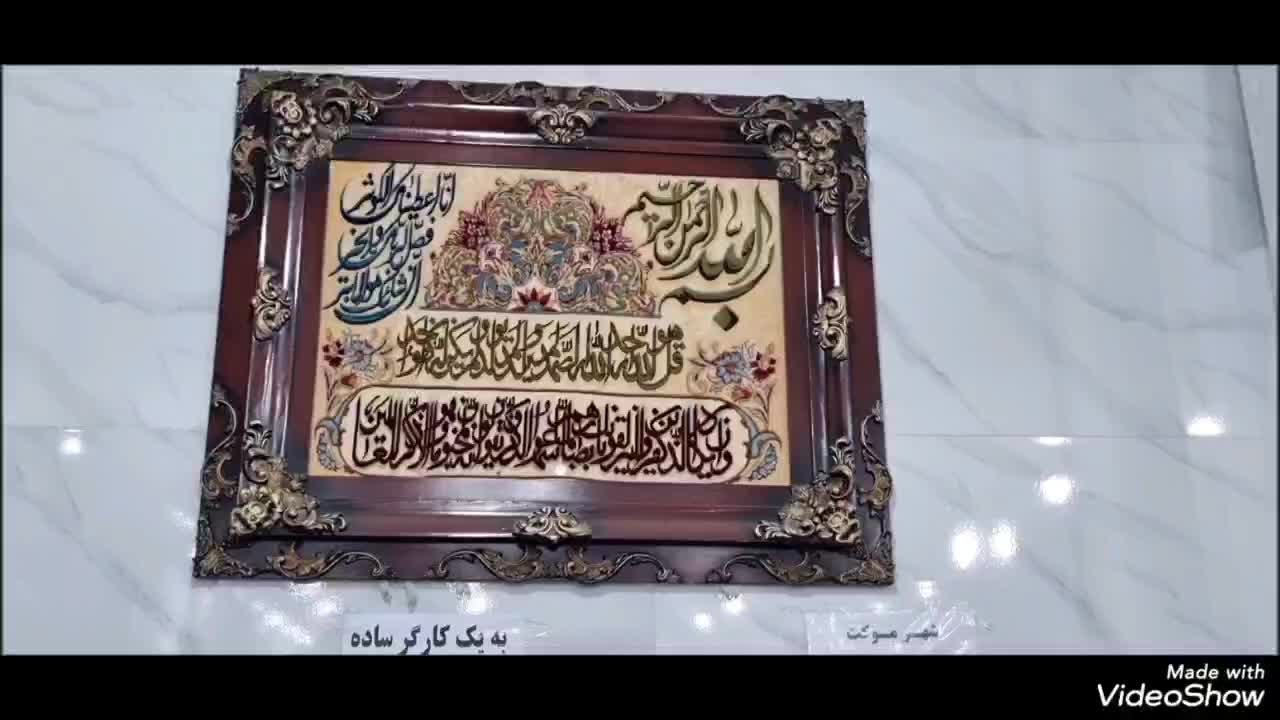 بسم الله الرحمن الرحیم
انا اعطیناک الکوثر
فصل لربک وانحر
ان شانئک هو الابتر
قل هو الله احد الله الصمد لم یلد و لم یولد و لم یکن له کفوا احد
و ان یکاد الذین کفروا لیزلقونک بابصارهم لما سمعوا الذکر و یقولون انه لمجنون و ما هو الا ذکر للعالمین
به یک کارگر ساده
شهر موکت
Made with
VideoShow